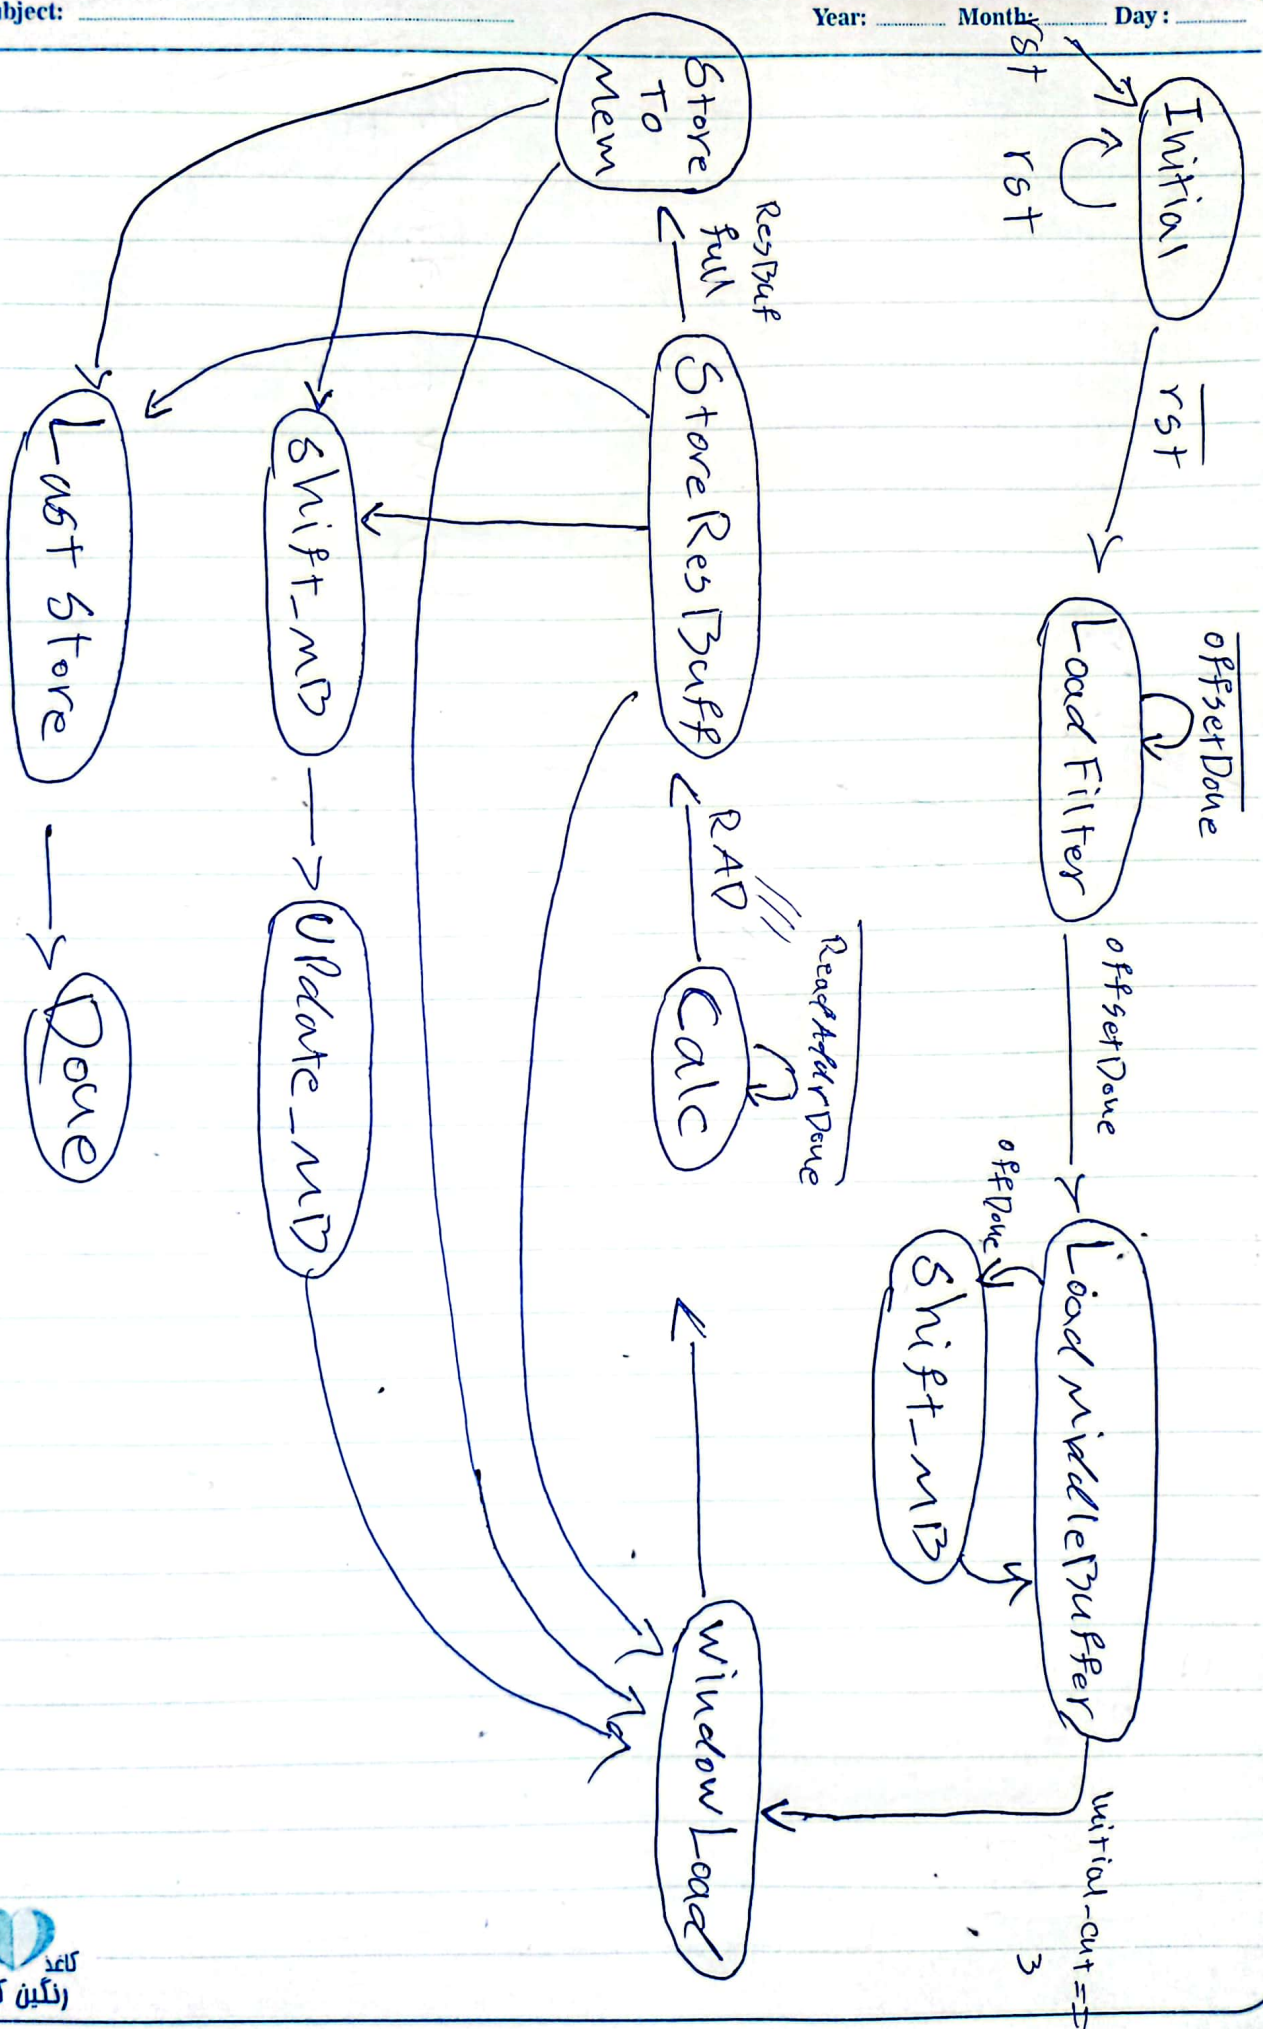 bject:
Year: Month: Day:
rst
Initial
rst
rst
Load Filter
offsetDone
offsetDone
Load MiddleBuffer
offDone
Shift_MB
initial-cnt ==
3
Window Load
Calc
ReadAddrDone
RAD
StoreResBuff
ResBuf
full
Store
To
Mem
Shift_MB
UPdate_MB
Last Store
Done
کاغذ
رنگین